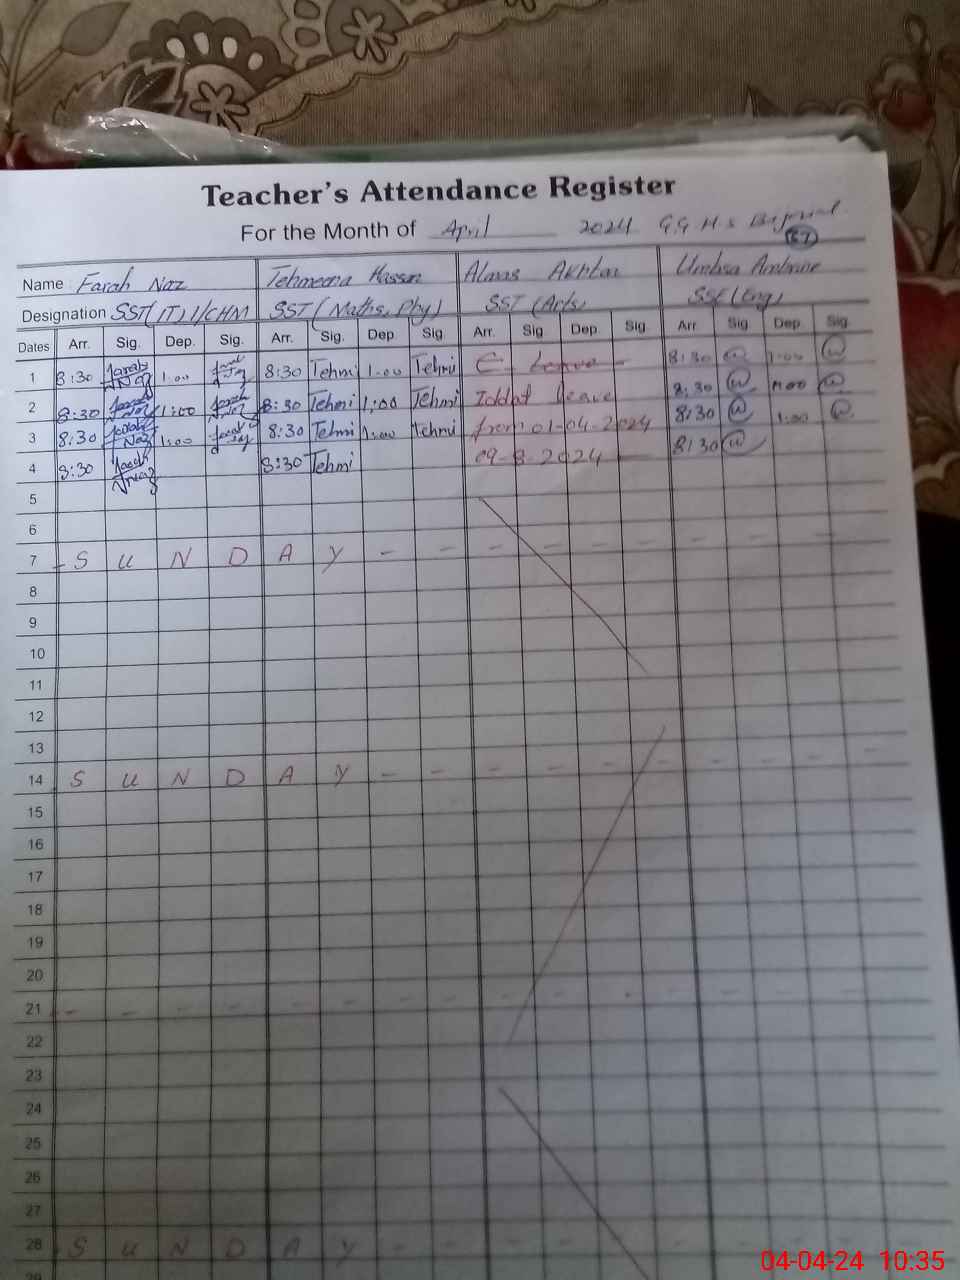 Teacher's Attendance Register
For the Month of April 2024 G.G.H.S
Name Farah Naz Tehmeena Hassan Almas Akhtar Umbsa Ambrine
Designation SST(IT) I/CHM SST(Maths, Phy) SST (Arts) SSE(Eng)
Dates Arr. Sig. Dep. Sig. Arr. Sig. Dep. Sig. Arr. Sig. Dep. Sig. Arr. Sig. Dep. Sig.
1 8:30 Farah Naz 1:00 Farah Naz 8:30 Tehmi 1:00 Tehmi Leave - 8:30 1:00
2 8:30 Farah Naz 1:00 Farah Naz 8:30 Tehmi 1:00 Tehmi Iddat leave 8:30 1:00
3 8:30 Farah Naz 1:00 Farah Naz 8:30 Tehmi 1:00 Tehmi from 01-04-2024 8:30 1:00
4 8:30 Farah Naz 8:30 Tehmi 09-8-2024 8:30
5
6
7 - S U N D A Y - - - - - - - - -
8
9
10
11
12
13
14 S U N D A Y - - - - - - - - -
15
16
17
18
19
20
21 - - - - - - - - - - - - - - - -
22
23
24
25
26
27
28 S U N D A Y - - - - - - - - -
29
04-04-24 10:35